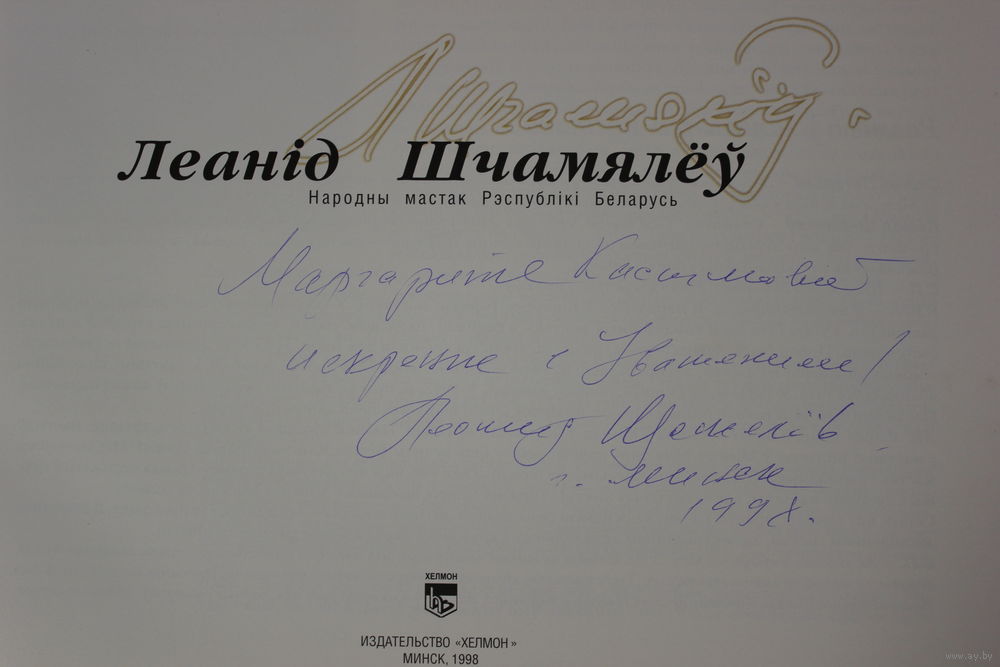 Леанід Шчамялёў
Народны мастак Рэспублікі Беларусь
Маргарите Касимовне
искренне с Уважением!
Леонид Щемелёв
г. Минск
1998.
ХЕЛМОН
ИЗДАТЕЛЬСТВО «ХЕЛМОН»
МИНСК, 1998
www.ay.by